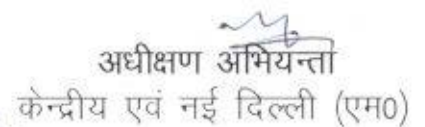 अधीक्षण अभियन्ता
केन्द्रीय एवं नई दिल्ली (एम0)